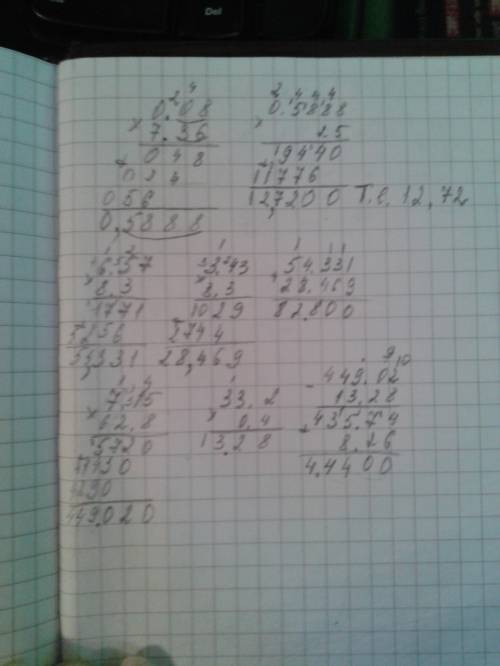 Del
2 4
0.08
× 7.36
048
024
056
0.5888
2 4 4 4
0.5888
× 25
19440
11776
12,7200 Т.е. 12,72
1 2
6.57
× 8.3
1771
5256
54,331
1
3.43
× 8.3
1029
2744
28,469
1 11
54.331
28.469
82.800
1 4
7.15
× 62.8
5720
1430
4290
449.020
1
33.2
× 0.4
13.28
9 10
- 449.02
13.28
435.74
8.26
4.4400